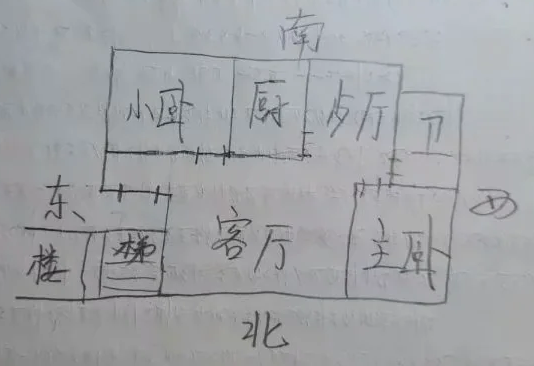 南
小卧 厨 歺厅 卫
东 西
楼 梯 客厅 主卧
北